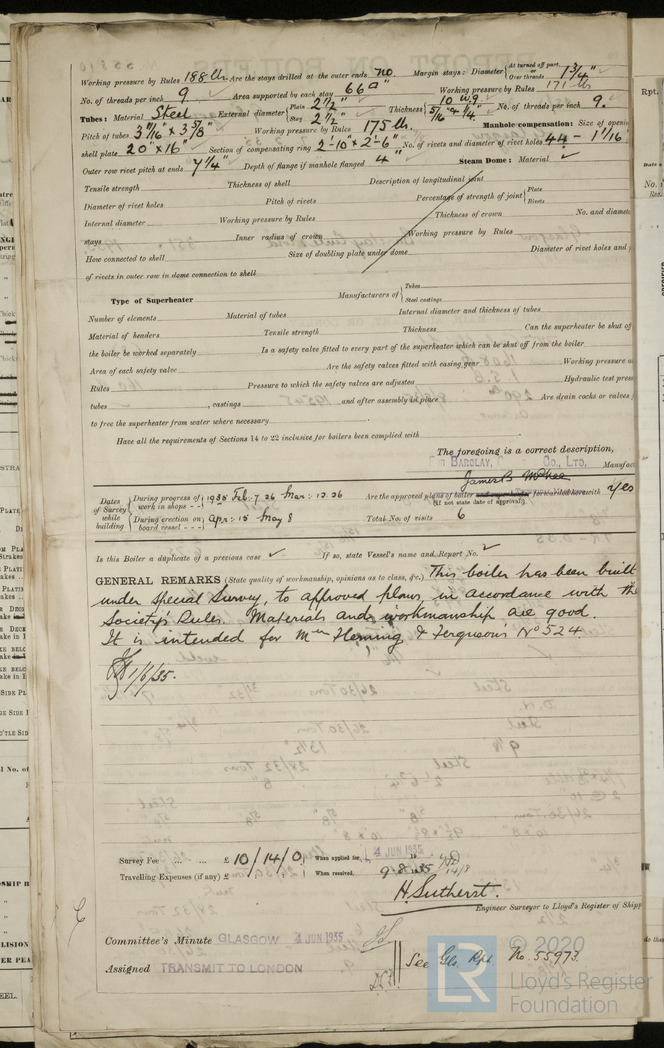 Working pressure by Rules 188 lbs Are the stays drilled at the outer ends no. Margin stays: Diameter { At turned off part, Over threads 1 3/4"
No. of threads per inch 9 Area supported by each stay 66 □" Working pressure by Rules 171 lbs
Tubes: Material Steel External diameter { Plain 2 1/2" Stay 2 1/2" Thickness { 10 W.G. 5/16" & 1/4" No. of threads per inch 9.
Pitch of tubes 3 11/16" x 3 5/8" Working pressure by Rules 175 lbs. Manhole compensation: Size of opening
shell plate 20" x 16" Section of compensating ring 2'-10" x 2'-6" No. of rivets and diameter of rivet holes 44 - 1 1/16"
Outer row rivet pitch at ends 7 1/4" Depth of flange if manhole flanged 4" Steam Dome: Material ✓
Tensile strength Thickness of shell Description of longitudinal joint
Diameter of rivet holes Pitch of rivets Percentage of strength of joint { Plate Rivets
Internal diameter Working pressure by Rules Thickness of crown No. and diameter
stays Inner radius of crown Working pressure by Rules
How connected to shell Size of doubling plate under dome Diameter of rivet holes and
of rivets in outer row in dome connection to shell
Type of Superheater Manufacturers of { Tubes Steel castings
Number of elements Material of tubes Internal diameter and thickness of tubes
Material of headers Tensile strength Thickness Can the superheater be shut off
the boiler be worked separately Is a safety valve fitted to every part of the superheater which can be shut off from the boiler
Area of each safety valve Are the safety valves fitted with easing gear Working pressure
Rules Pressure to which the safety valves are adjusted Hydraulic test press
tubes , castings and after assembly in place Are drain cocks or valves
to free the superheater from water where necessary
Have all the requirements of Sections 14 to 22 inclusive for boilers been complied with
The foregoing is a correct description,
BARCLAY, Co., LTD. Manufac
James B McPhee
Dates of Survey while building { During progress of work in shops - - 1935 Feb. 7. 26 Mar: 13. 26 Are the approved plans of boiler and superheater forwarded herewith yes
(If not state date of approval.)
During erection on board vessel - - - Apr: 15 May 8 Total No. of visits 6
Is this Boiler a duplicate of a previous case ✓ If so, state Vessel's name and Report No. ✓
GENERAL REMARKS (State quality of workmanship, opinions as to class, &c. This boiler has been built
under special Survey, to approved plans, in accordance with the
Society's Rules. Materials and workmanship are good.
It is intended for Mess Fleming & Ferguson's No 524.
1/6/35.
Survey Fee ... ... £ 10/14/0 When applied for, 4 JUN 1935
Travelling Expenses (if any) £ : : When received,
H Sutherst.
Engineer Surveyor to Lloyd's Register of Shipp
Committee's Minute GLASGOW 4 JUN 1935
Assigned TRANSMIT TO LONDON
See Gls. Rpt. No. 55973
© 2020
LR
Lloyd's Register
Foundation
Rpt.